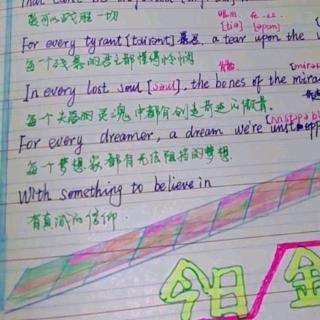 真可以战胜一切
眼泪
[tiə] [əpɒn]
For every tyrant [tairənt] 暴君, a tear upon the
每个残暴的君主都懂得怜悯
In every lost soul [səul], the bones of the
每个失落的灵魂中都有创造奇迹的傲骨.
For every dreamer, a dream we're unstopp
每个梦想家都有无法阻挡的梦想.
With something to believe in
有真诚的信仰.
今日 金